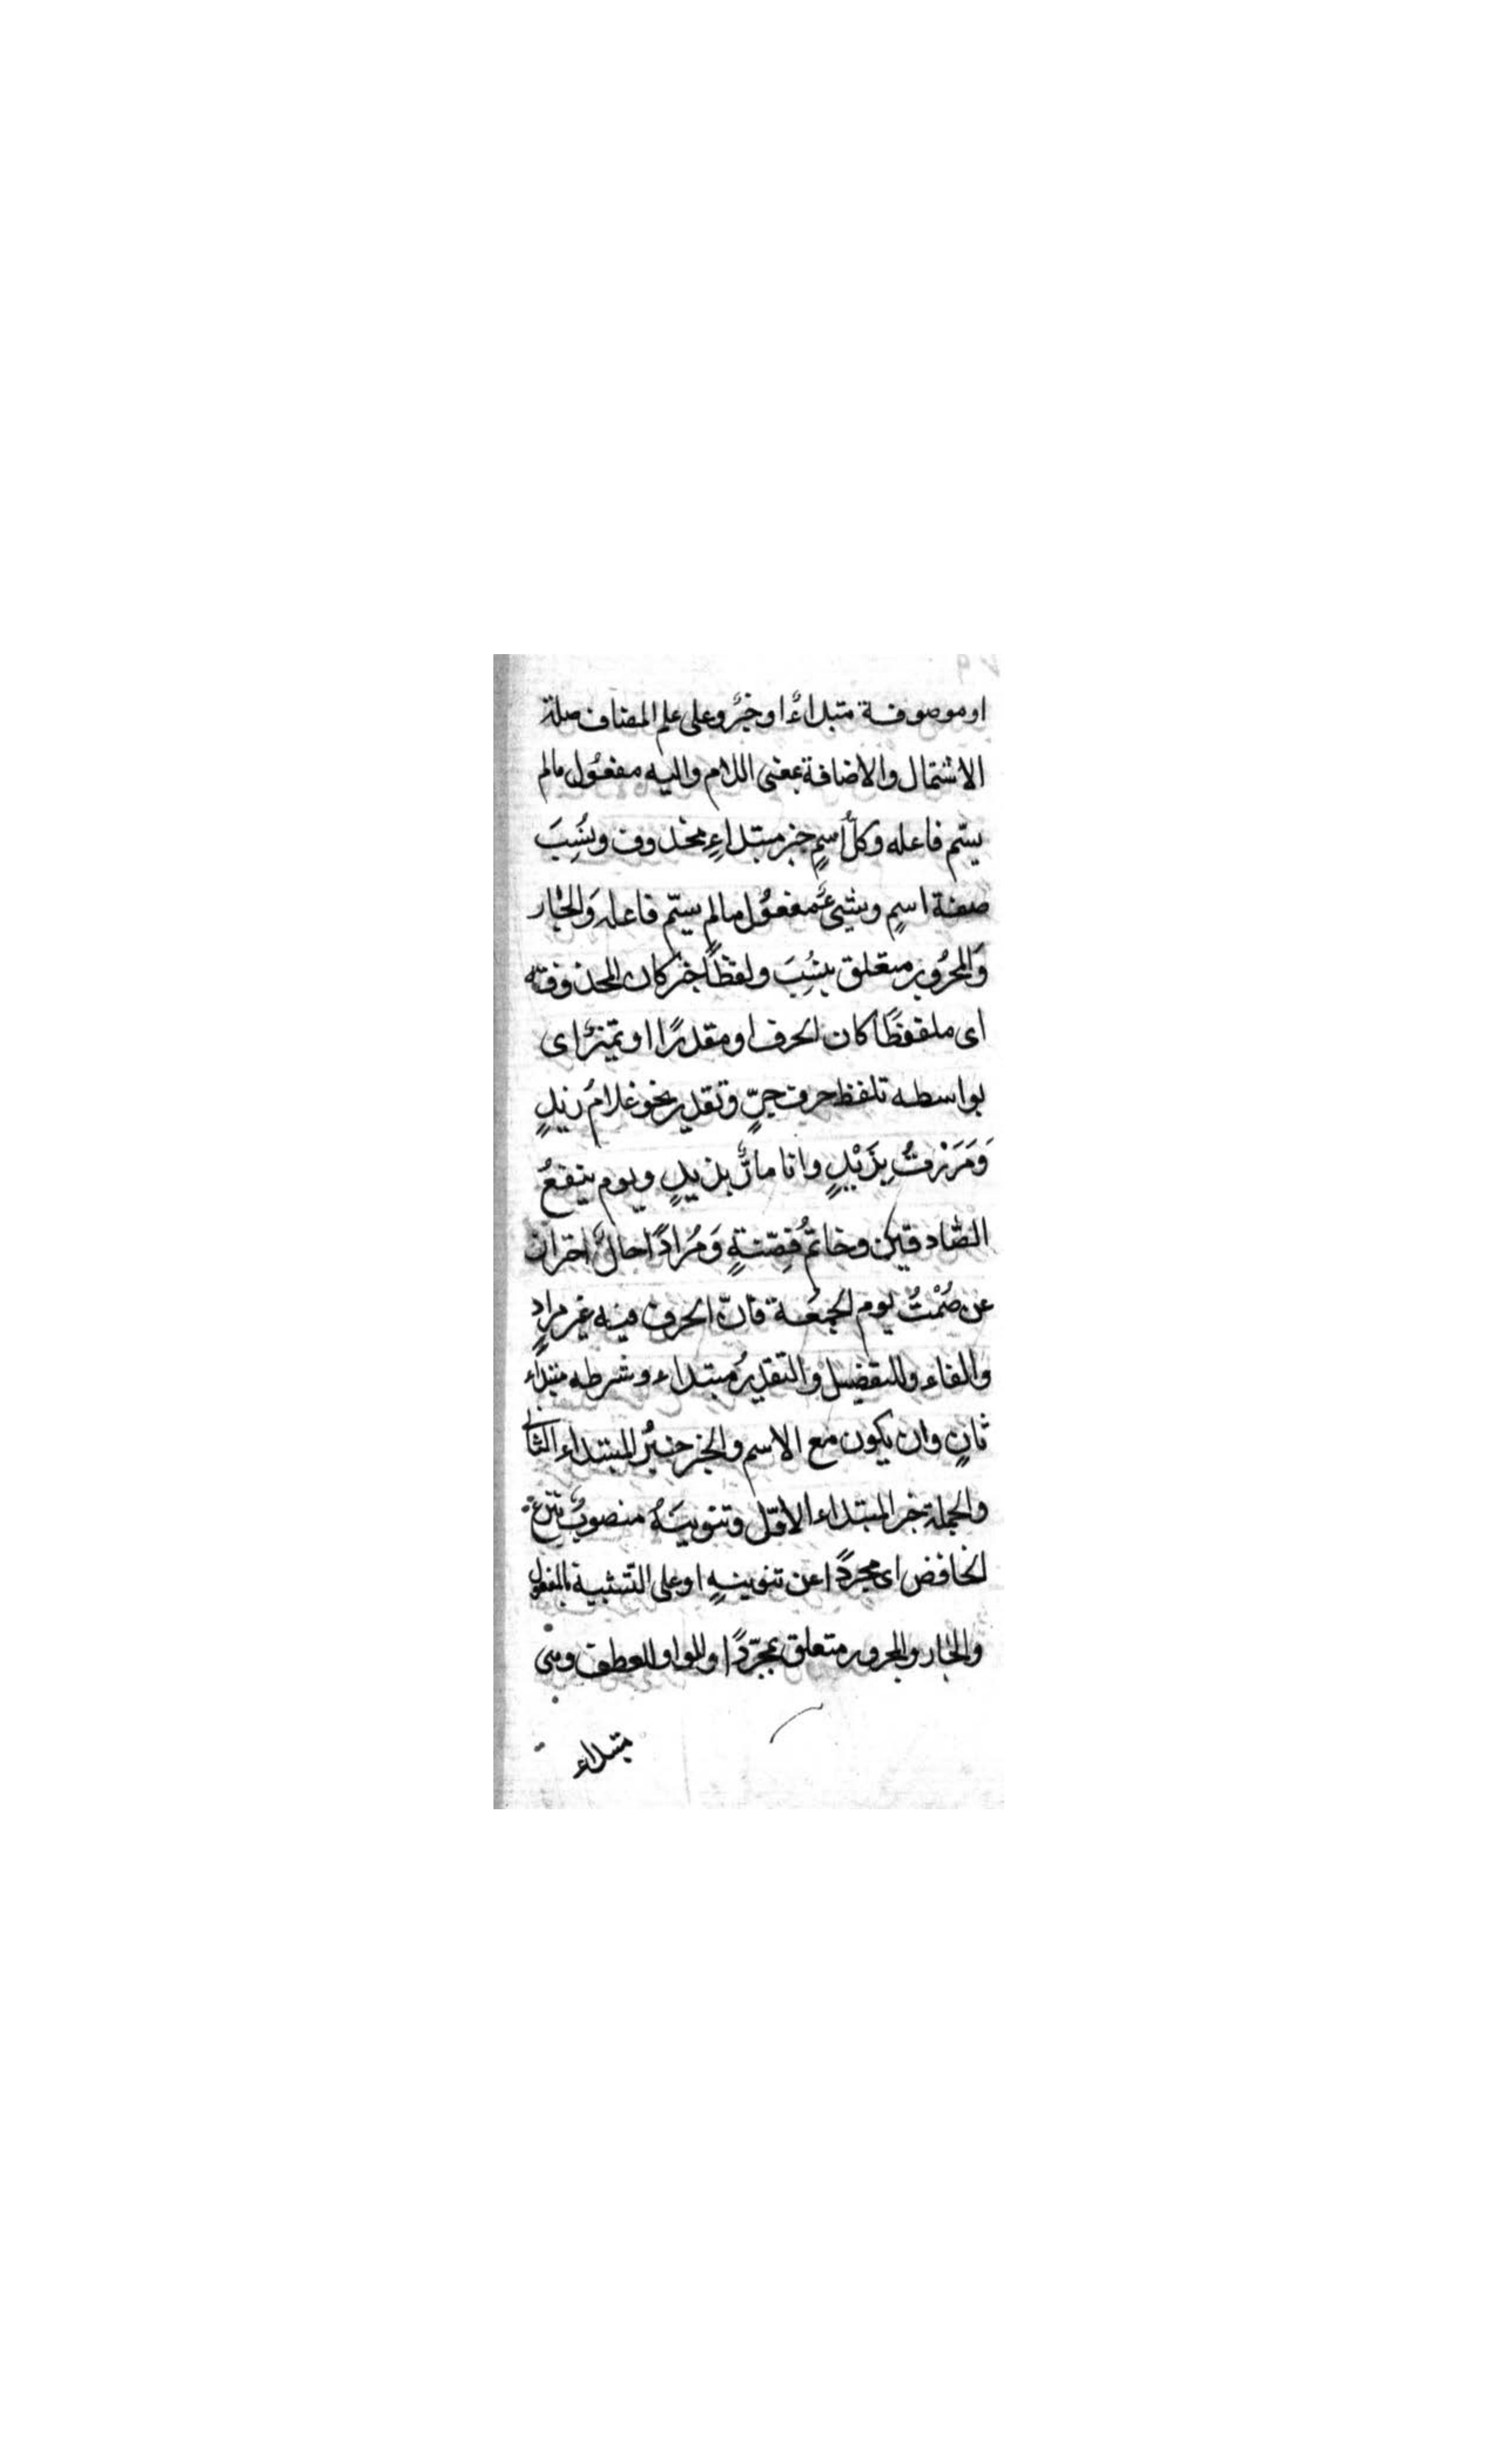 او موصوفة متبداءٌ او خبرٌ وعلى علم المضاف صلة
الاشتمال والاضافة بمعنى اللام واليه مفعُول مالم
يسّم فاعله وكلُّ اسمٍ خبر مبتداءٍ محذوف ونُسِبَ
صفة اسمٍ وشيئٌ مفعوُل مالم يسّم فاعله وَالجار
وَالمجرُور متعلق بنُسِبَ ولفظًا خبر كان المحذوفة
اى ملفوظًا كان الحرف او مقدرًا او تميزٌ اى
بواسطه تلفظ حرف جرٍّ وتقدير نحو غلامُ زيدٍ
وَمَرَرْتُ بِزَيْدٍ وانا مارٌّ بزيدٍ ويوم ينفعُ
الصّادقين وخاتمُ فِضّةٍ وَمُرادًا حالٌ احتراز
عن صُمْتُ يوم الجمُعة فانّ الحرف فيه غير مرادٍ
والفاء وللتفضيل والتقديرُ مبتداء وشرطه مبتداء
ثانٍ وان يكون مع الاسم والخبر خبرُ المبتداء الثانى
والجملة خبر المبتداء الاوّل وتنوينَهُ منصوبٌ بنزع
الخافض اى مجردًا عن تنوينهٍ او على التشبية بالمفعول
والجار والمجرور متعلق بمجرّدًا والواو للعطف وهى
مبتداء